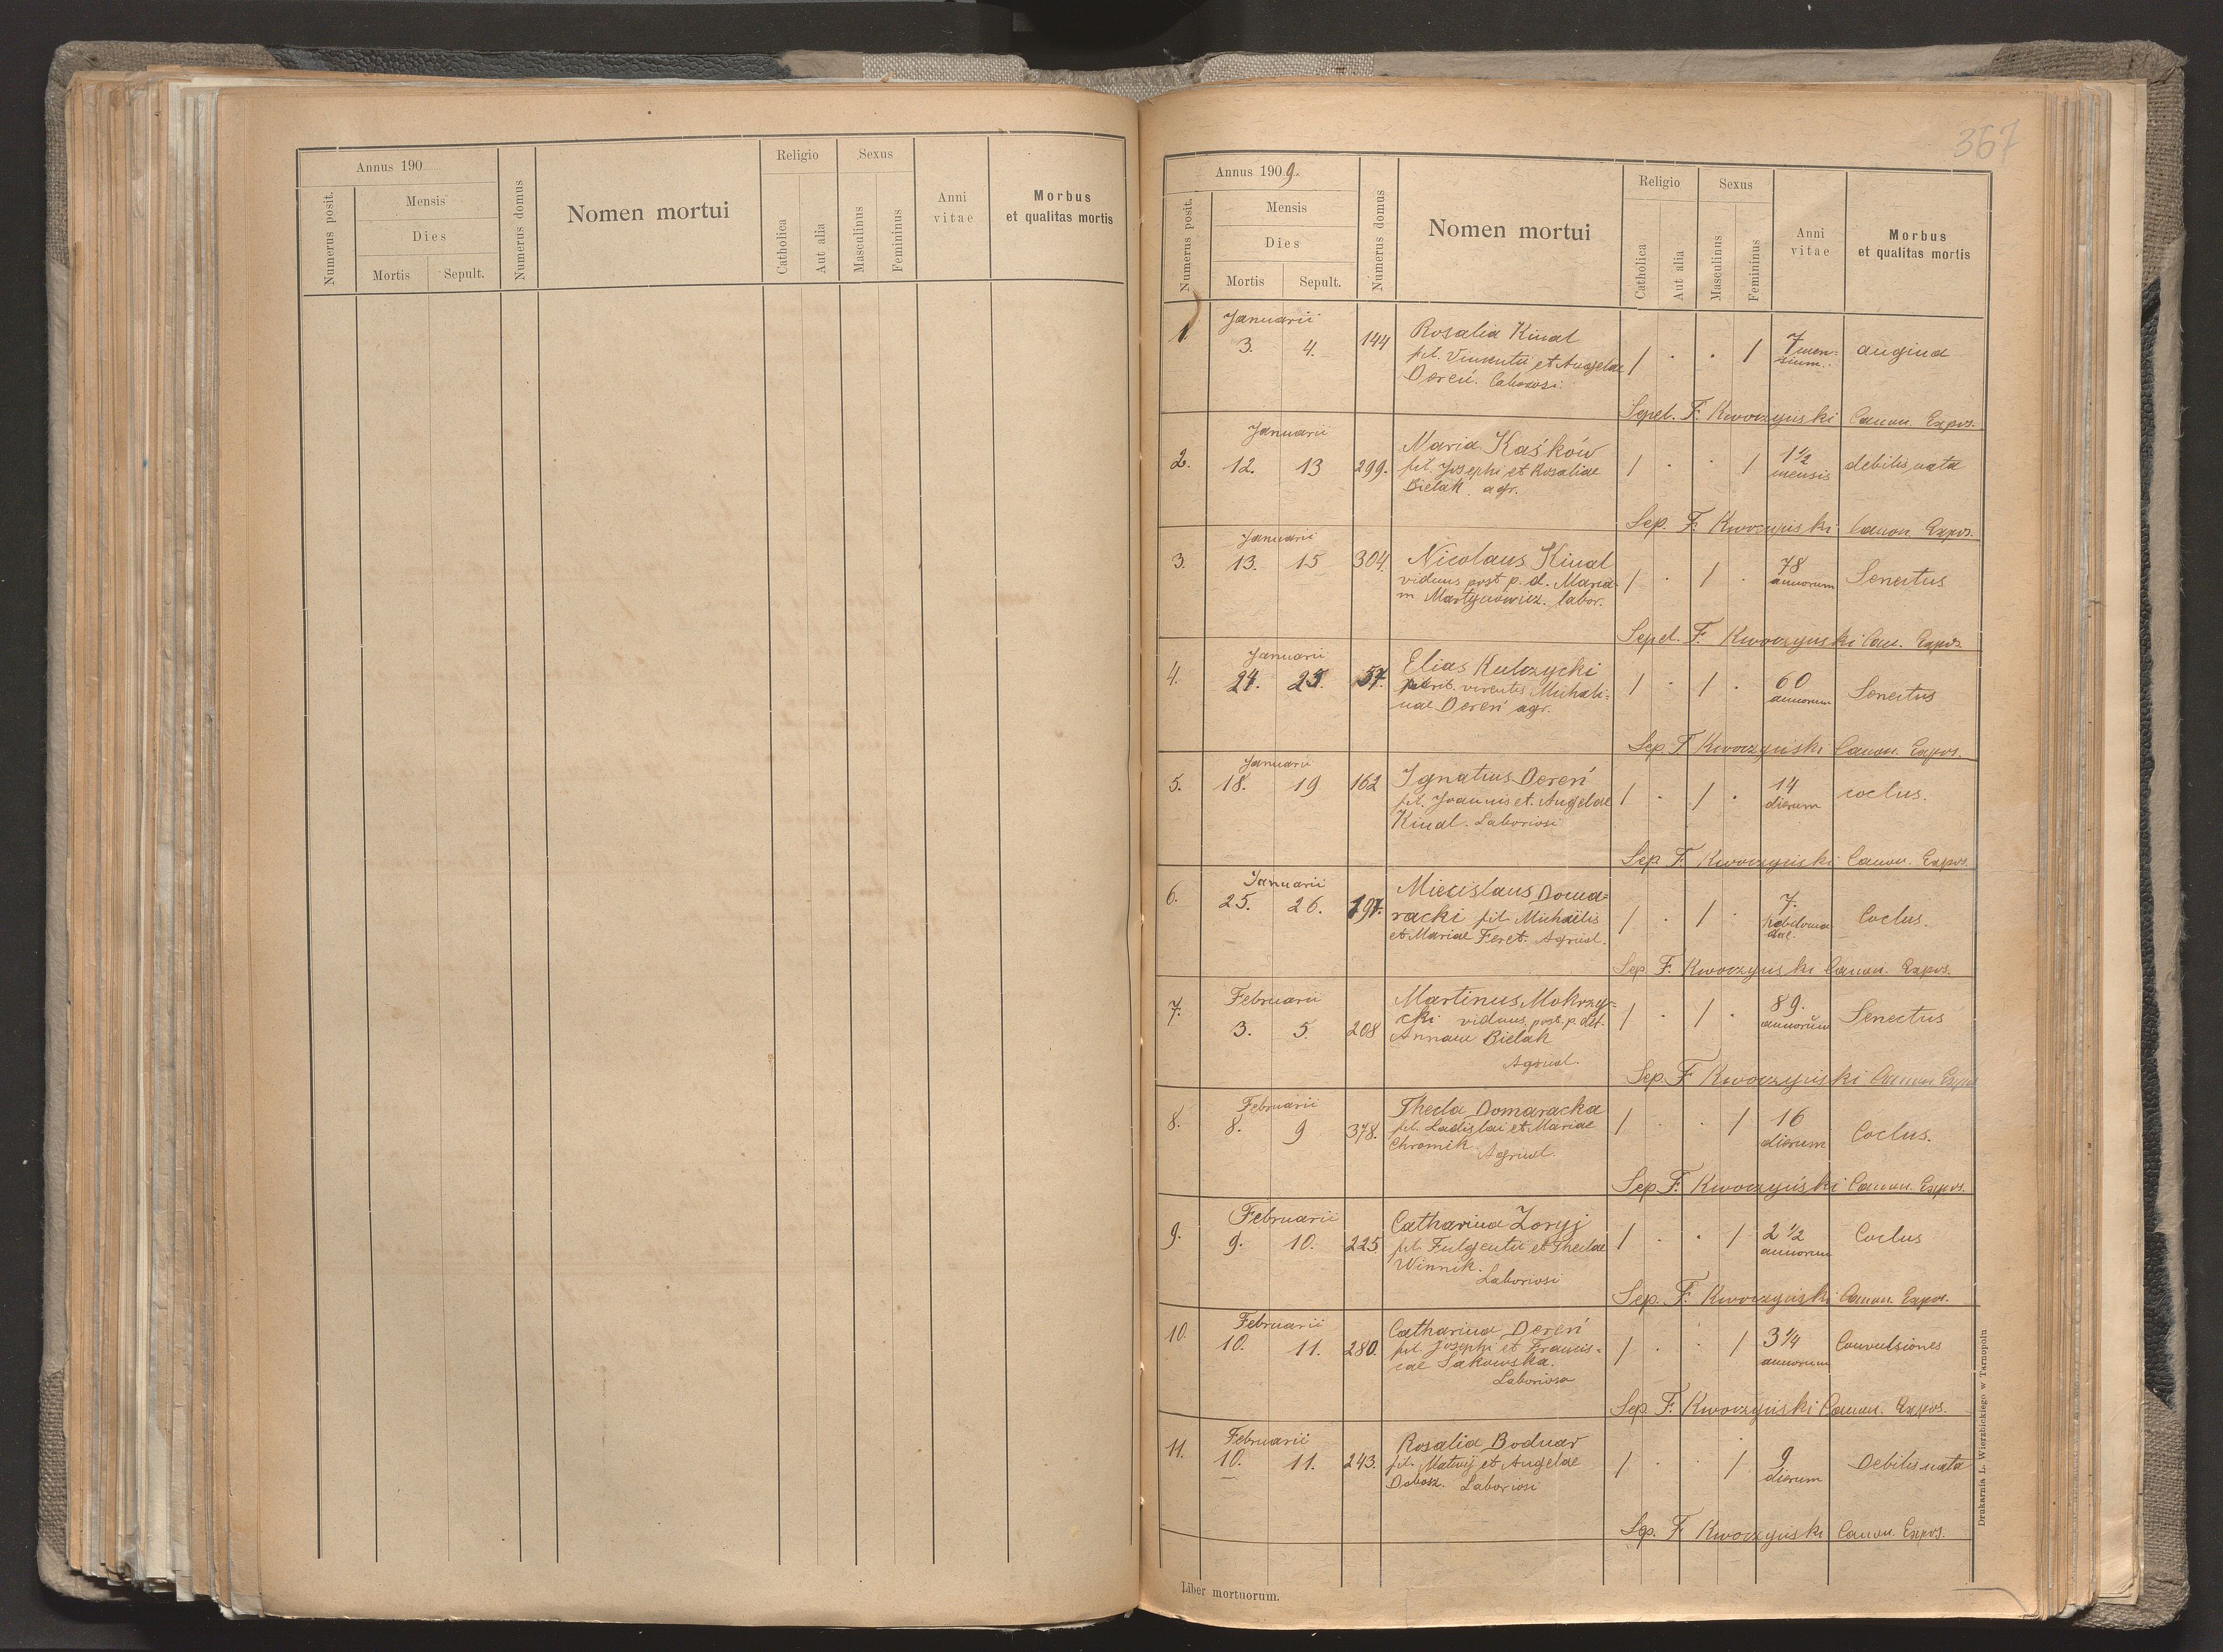 Annus 190
Numerus posit.
Mensis
Dies
Mortis
Sepult.
Numerus domus
Nomen mortui
Religio
Catholica
Aut alia
Sexus
Masculinus
Femininus
Anni
vitae
Morbus
et qualitas mortis
367
Annus 1909.
Numerus posit.
Mensis
Dies
Mortis
Sepult.
Numerus domus
Nomen mortui
Religio
Catholica
Aut alia
Sexus
Masculinus
Femininus
Anni
vitae
Morbus
et qualitas mortis
1. Januarii
3. 4. 144
Rosalia Kinal
fil. Vincentii et Angelae
Dereń. Laboriosi.
/ . . / 7 men-
sium. angina
Sepel. F. Kwoczyński Canon. Expos.
2. Januarii
12. 13 299.
Maria Kaśków
fil. Josephi et Rosaliae
Bielak. agr.
/ . . / 1 1/2
mensis debilis nata
Sep. F. Kwoczyński Canon. Expos.
3. Januarii
13. 15 304.
Nicolaus Kinal
viduus post p. d. Maria-
m Martynowicz. labor.
/ . / . 78
annorum Senectus
Sepel. F. Kwoczyński Can. Expos.
4. Januarii
24. 25. 57.
Elias Kulczycki
marit. viventis Michali=
nae Dereń agr.
/ . / . 60
annorum Senectus
Sep. F Kwoczyński Canon. Expos.
5. Januarii
18. 19 162
Ignatius Dereń
fil. Joannis et Angelae
Kinal. Laboriosi
/ . / . 14
dierum coclus.
Sep. F. Kwoczyński Canon. Expos.
6. Januarii
25. 26. 197.
Miecislaus Doma=
racki fil. Michaëlis
et Mariae Feret. Agricol.
/ . / . 7.
hebdoma
dae. Coclus.
Sep. F. Kwoczyński Canon. Expos.
7. Februarii
3. 5. 208
Martinus Mokrzy=
cki viduus post p. def.
Annam Bielak
Agricol.
/ . / . 89.
annorum Senectus
Sep. F Kwoczyński Canon Expos
8. Februarii
8. 9 378.
Thecla Domaracka
fil. Ladislai et Mariae
Chromik Agricol.
/ . . / 16
dierum Coclus.
Sep. F. Kwoczyński Canon. Expos.
9. Februarii
9. 10. 225
Catharina Zoryj
fil. Fulgentii et Theclae
Winnik.
Laboriosi
/ . . / 2 1/2
annorum Coclus
Sep. F. Kwoczyński Canon. Expos.
10. Februarii
10. 11. 280.
Catharina Dereń
fil. Josephi et Francis=
cae Sakowska.
Laboriosa
/ . . / 3 1/4
annorum Convulsiones
Sep. F. Kwoczyński Canon. Expos.
11. Februarii
10. 11. 243.
Rosalia Bodnar
fil. Matvij et Angelae
Dobosz. Laboriosi
/ . . / 9
dierum Debilis nata
Sep. F Kwoczyński Canon. Expos.
Liber mortuorum.
Drukarnia L. Wierzbickiego w Tarnopolu